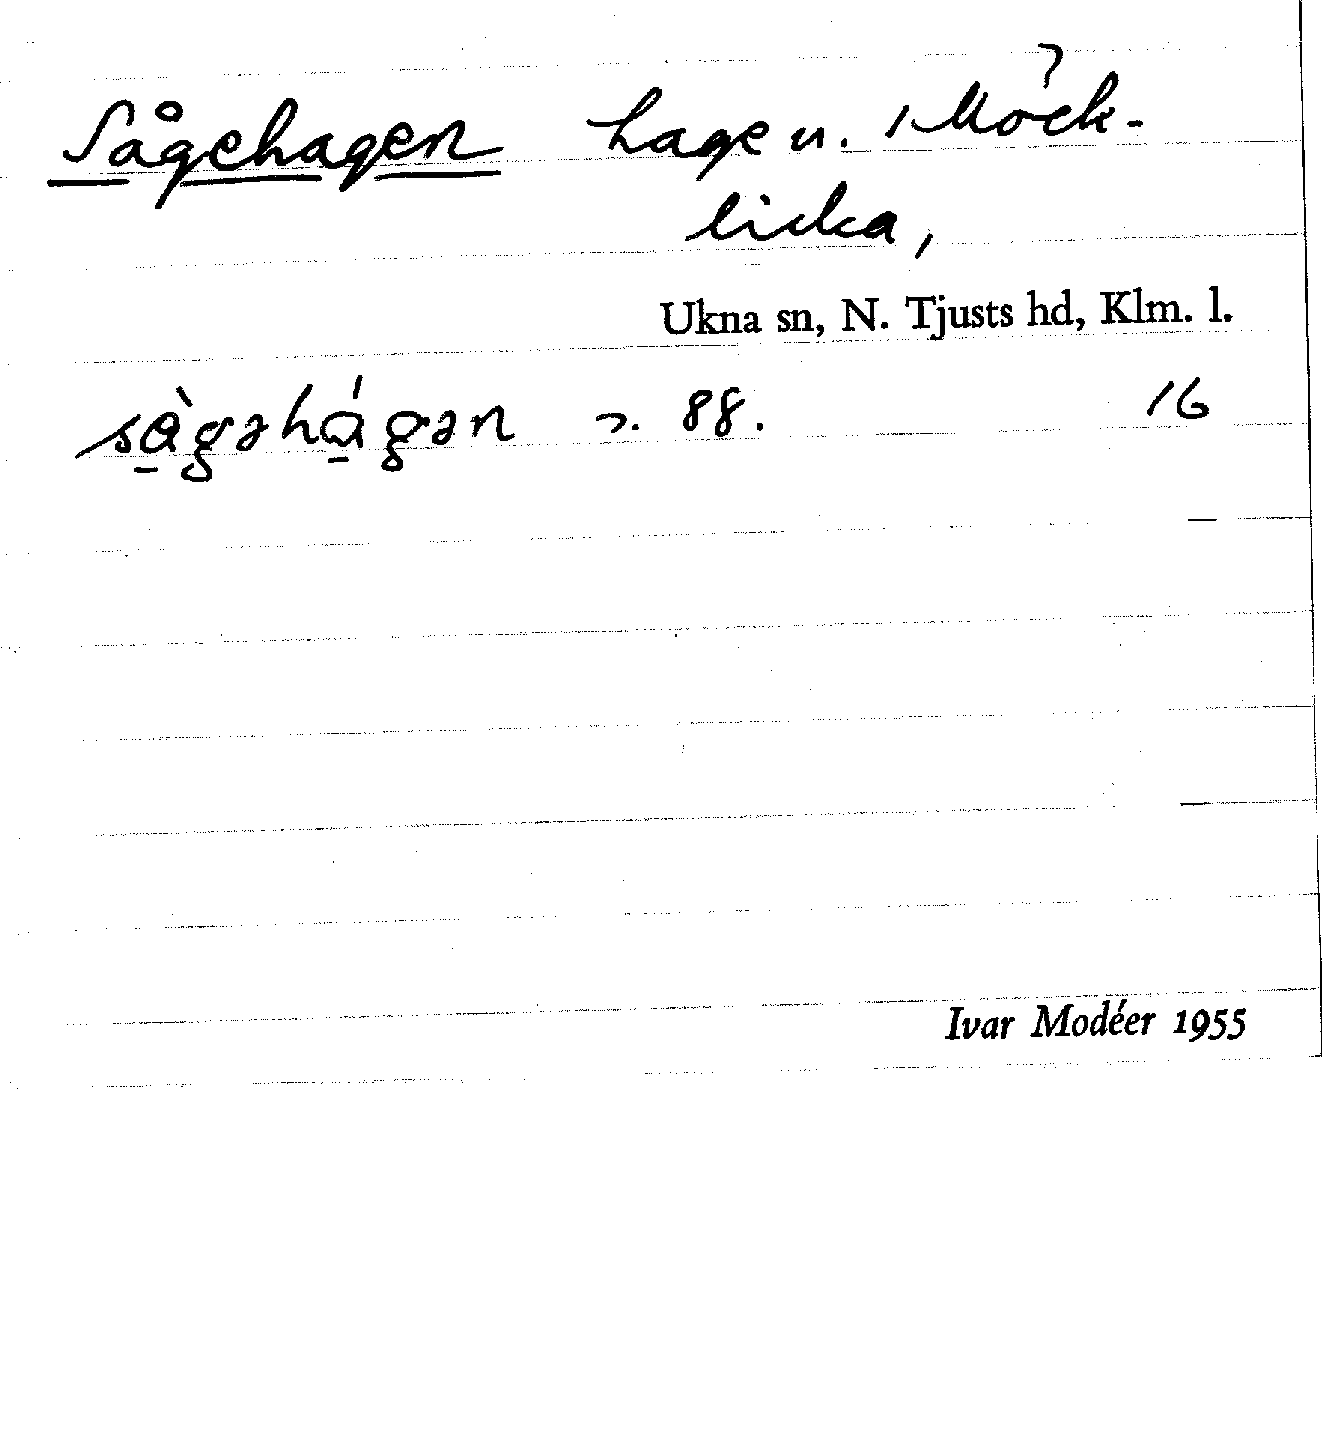 Sågehagen hage u. Möck-
licka,
Ukna sn, N. Tjusts hd, Klm. l.
sàgəhágən 88. 16
Ivar Modéer 1955